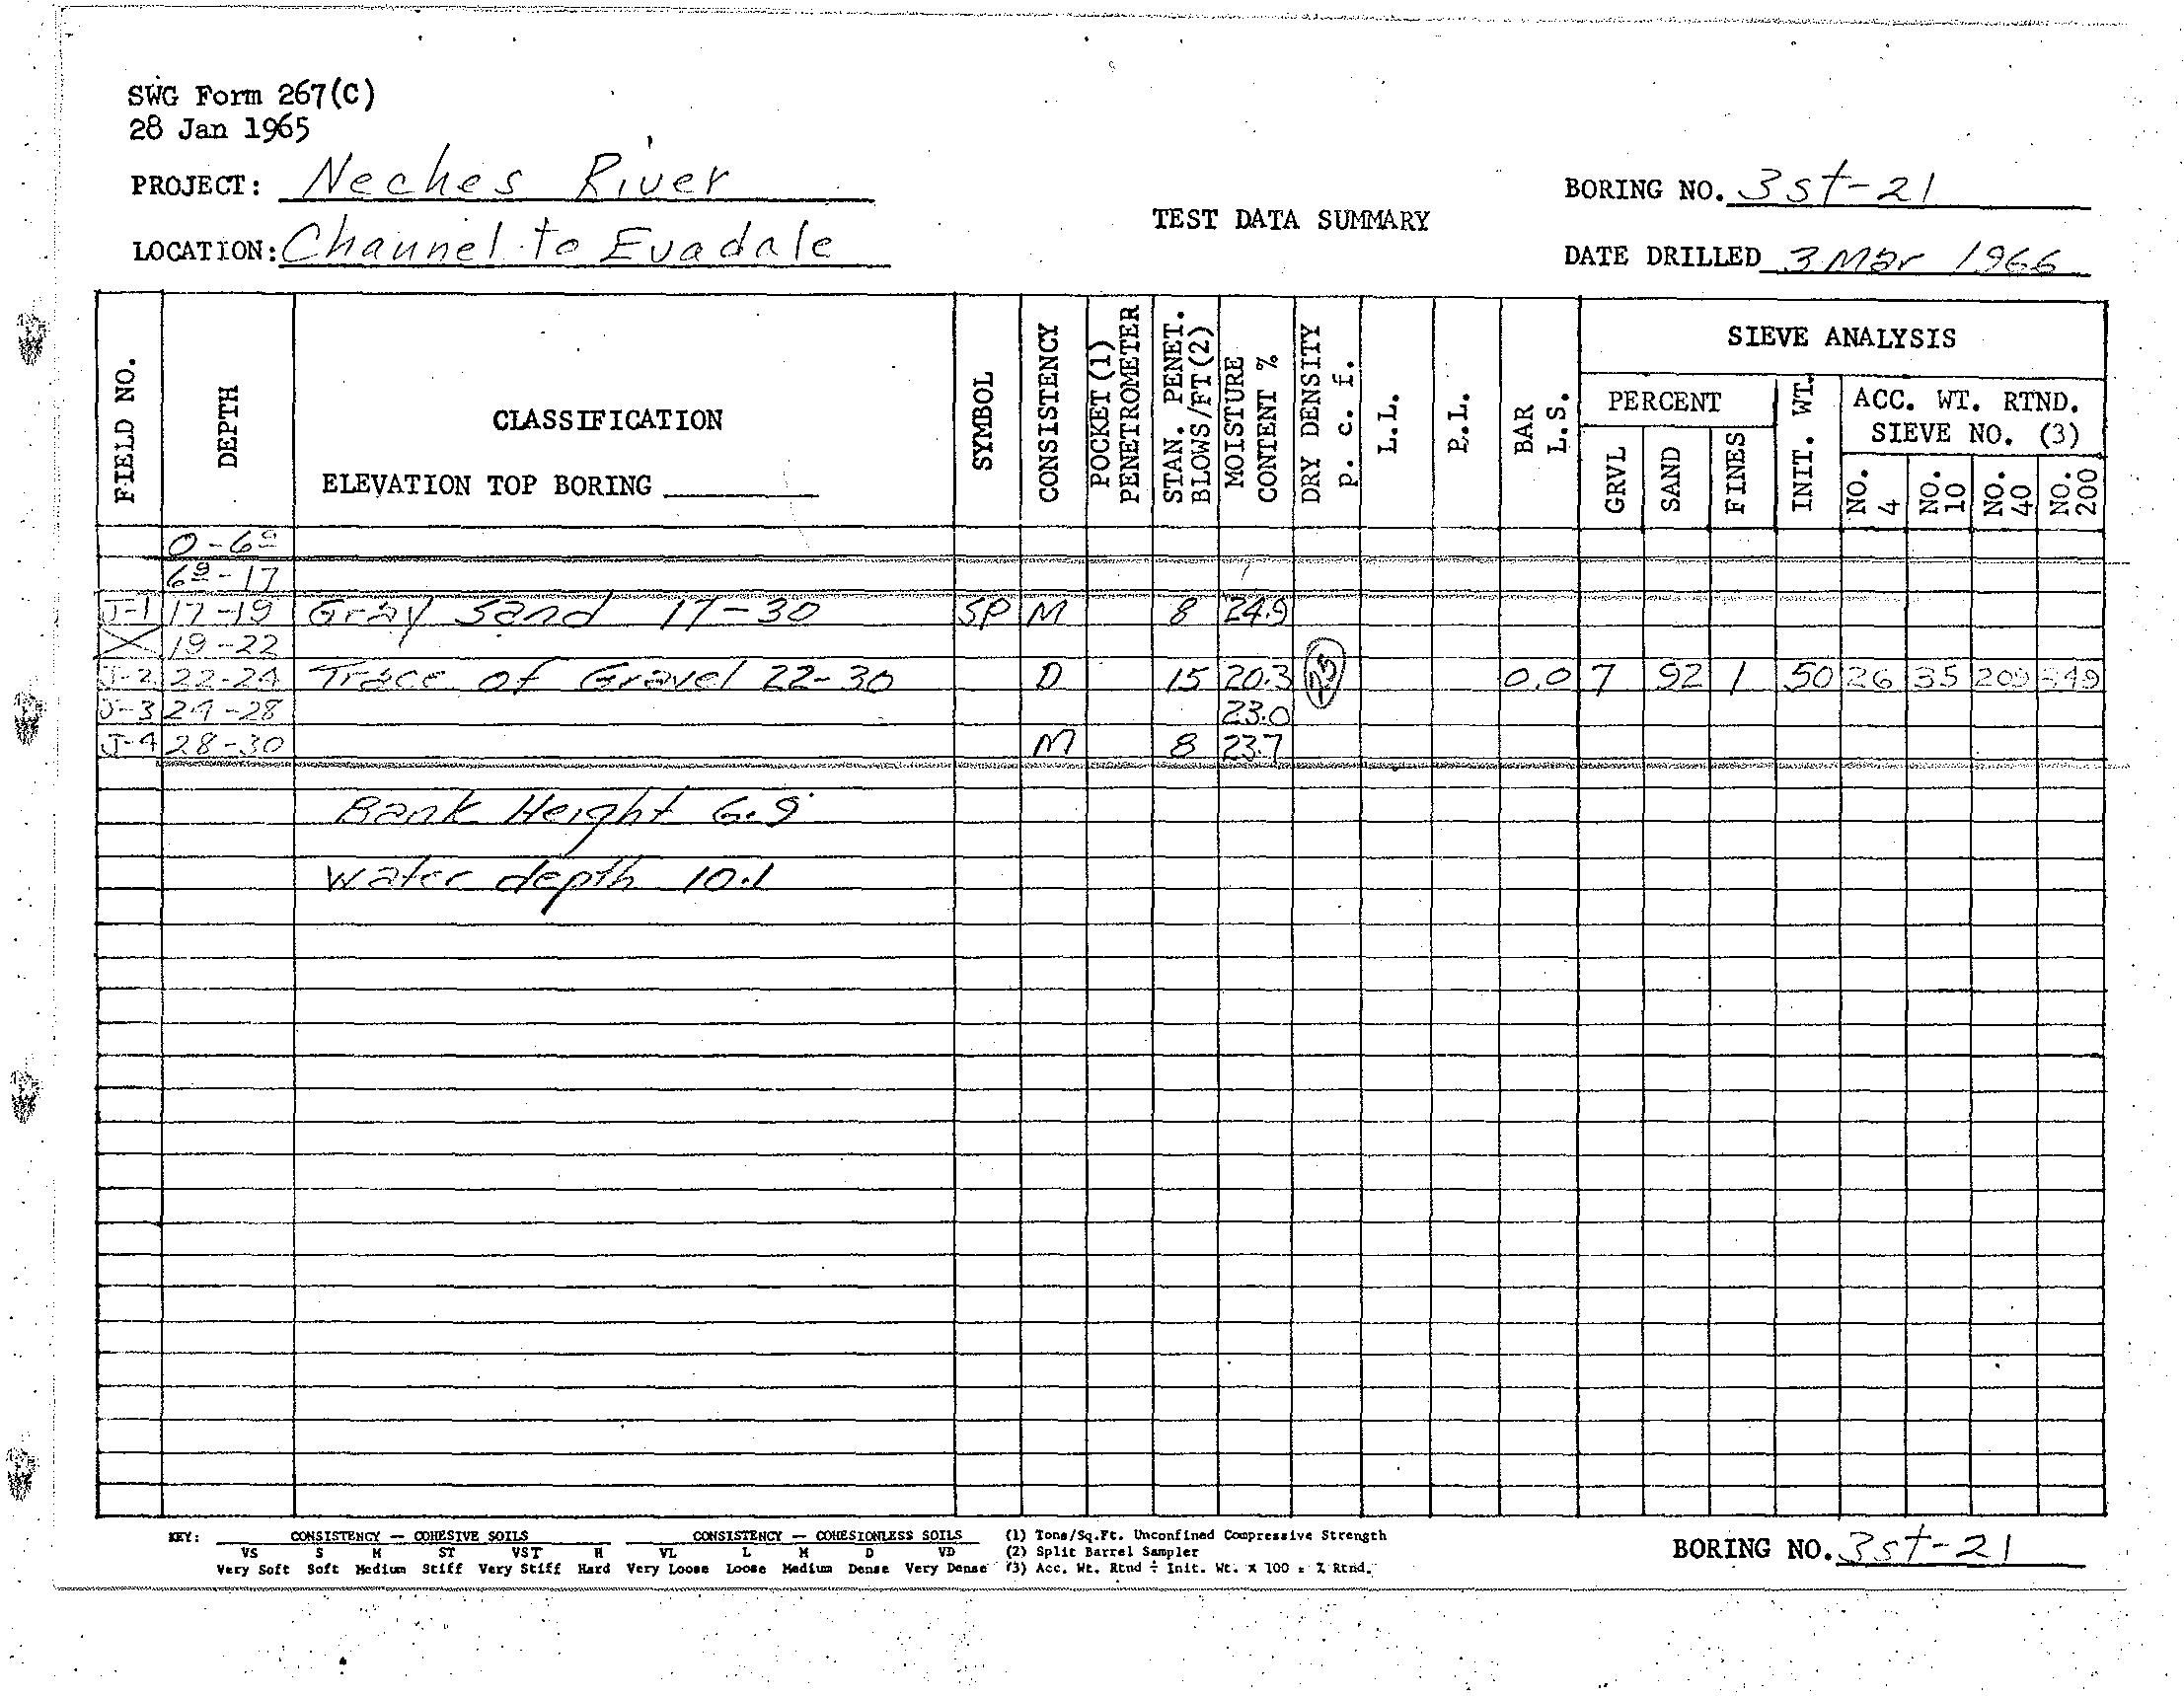 SWG Form 267(C)
28 Jan 1965
PROJECT: Neches River
BORING NO. 3st-21
TEST DATA SUMMARY
LOCATION: Channel to Evadale
DATE DRILLED 3 Mar 1966
FIELD NO.
DEPTH
CLASSIFICATION
ELEVATION TOP BORING
SYMBOL
CONSISTENCY
POCKET (1) PENETROMETER
STAN. PENET. BLOWS/FT(2)
MOISTURE CONTENT %
DRY DENSITY p. c. f.
L.L.
P.L.
BAR L.S.
SIEVE ANALYSIS
PERCENT
GRVL
SAND
FINES
INIT. WT.
ACC. WT. RTND.
SIEVE NO. (3)
NO. 4
NO. 10
NO. 40
NO. 200
0-6.9
6.9-17
J-1 17-19 Gray Sand 17-30 SP M 8 24.9
X 19-22
J-2 22-24 Trace of Gravel 22-30 D 15 20.3 0.0 7 92 1 50 26 35 209
J-3 24-28 23.0
J-4 28-30 M 8 23.7
Bank Height 6.9
Water depth 10.1
KEY: CONSISTENCY — COHESIVE SOILS CONSISTENCY — COHESIONLESS SOILS (1) Tons/Sq.Ft. Unconfined Compressive Strength
VS S M ST VST H VL L M D VD (2) Split Barrel Sampler
Very Soft Soft Medium Stiff Very Stiff Hard Very Loose Loose Medium Dense Very Dense (3) Acc. Wt. Rtnd ÷ Init. Wt. x 100 = % Rtnd.
BORING NO. 3st-21